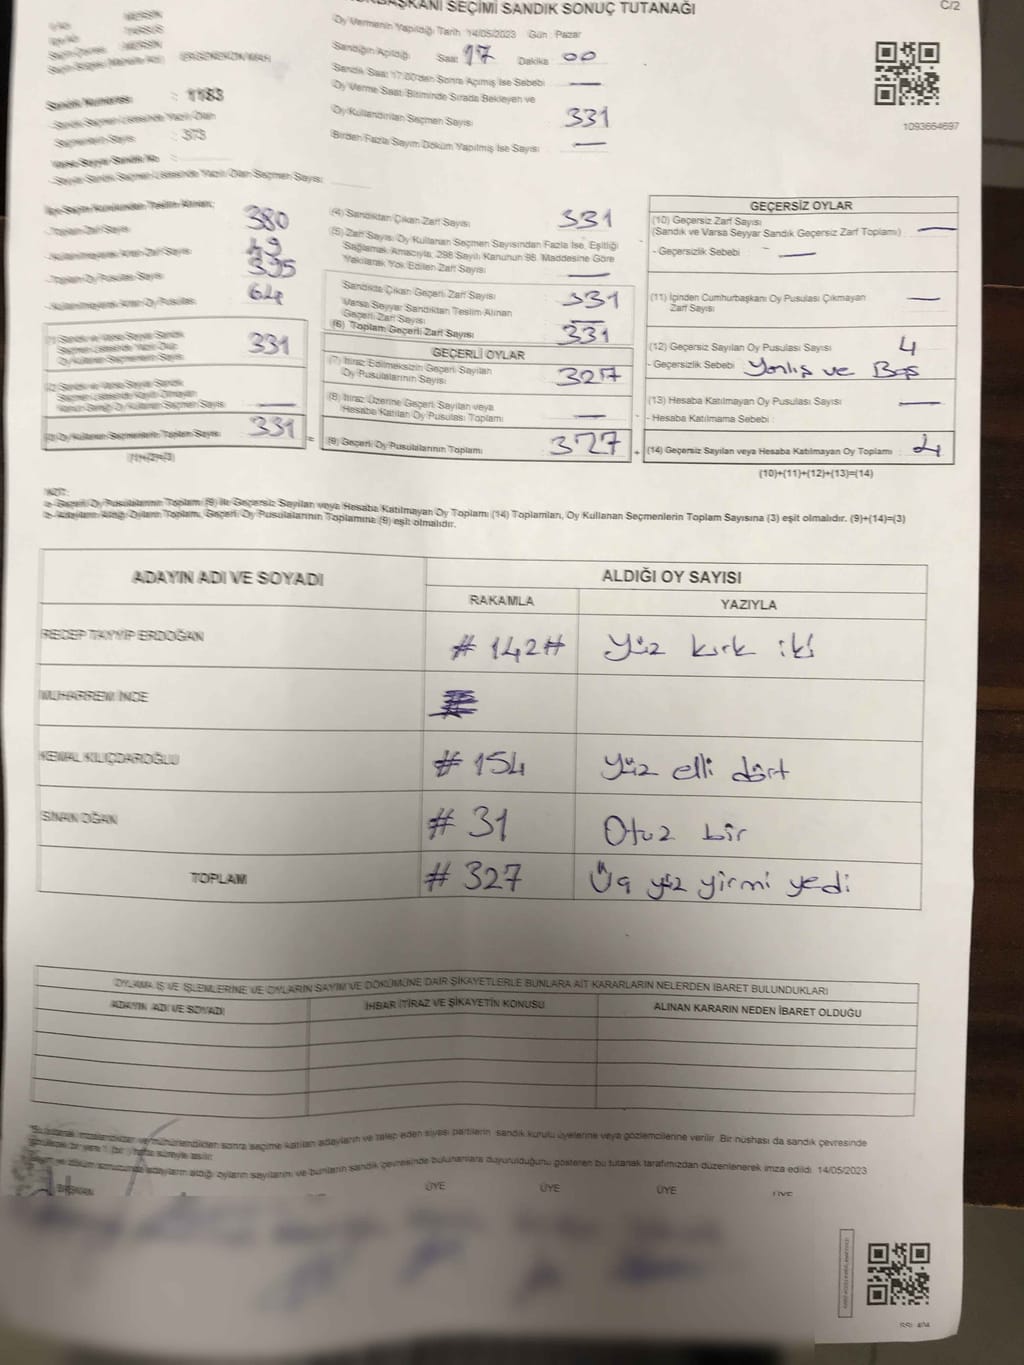 BAŞKANI SEÇİMİ SANDIK SONUÇ TUTANAĞI
C/2
MERSİN
TARSUS
MERSİN
ERGENEKON MAH
Sandık Numarası : 1183
Sandık Seçmen Listesinde Yazılı Olan
Seçmenlerin Sayısı : 373
Varsa Seyyar Sandık No :
Seyyar Sandık Seçmen Listesinde Yazılı Olan Seçmen Sayısı:
Oy Vermenin Yapıldığı Tarih 14/05/2023 Gün : Pazar
Sandığın Açıldığı Saat 17 Dakika 00
Sandık Saat 17:00'den Sonra Açılmış İse Sebebi —
Oy Verme Saati Bitiminde Sırada Bekleyen ve
Oy Kullandırılan Seçmen Sayısı 331
Birden Fazla Sayım Döküm Yapılmış İse Sayısı —
1093664697
İlçe Seçim Kurulundan Teslim Alınan;
- Toplam Zarf Sayısı 380
- Kullanılmayarak Artan Zarf Sayısı 49
- Toplam Oy Pusulası Sayısı 395
- Kullanılmayarak Artan Oy Pusulası 64
(1) Sandık ve Varsa Seyyar Sandık
Seçmen Listesinde Yazılı Olup
Oy Kullanan Seçmenlerin Sayısı 331
(2) Sandık ve Varsa Seyyar Sandık
Seçmen Listesinde Kayıtlı Olmayan
Kanun Gereği Oy Kullanan Seçmen Sayısı —
(3) Oy Kullanan Seçmenlerin Toplam Sayısı 331
(1)+(2)=(3)
(4) Sandıktan Çıkan Zarf Sayısı 331
(5) Zarf Sayısı, Oy Kullanan Seçmen Sayısından Fazla İse, Eşitliği
Sağlamak Amacıyla, 298 Sayılı Kanunun 98. Maddesine Göre
Yakılarak Yok Edilen Zarf Sayısı —
Sandıkta Çıkan Geçerli Zarf Sayısı 331
Varsa Seyyar Sandıktan Teslim Alınan
Geçerli Zarf Sayısı —
(6) Toplam Geçerli Zarf Sayısı 331
GEÇERLİ OYLAR
(7) İtiraz Edilmeksizin Geçerli Sayılan
Oy Pusulalarının Sayısı 327
(8) İtiraz Üzerine Geçerli Sayılan veya
Hesaba Katılan Oy Pusulası Toplamı —
= (9) Geçerli Oy Pusulalarının Toplamı 327
GEÇERSİZ OYLAR
(10) Geçersiz Zarf Sayısı —
(Sandık ve Varsa Seyyar Sandık Geçersiz Zarf Toplamı)
- Geçersizlik Sebebi : —
(11) İçinden Cumhurbaşkanı Oy Pusulası Çıkmayan
Zarf Sayısı —
(12) Geçersiz Sayılan Oy Pusulası Sayısı 4
- Geçersizlik Sebebi : Yanlış ve Boş
(13) Hesaba Katılmayan Oy Pusulası Sayısı —
- Hesaba Katılmama Sebebi :
+ (14) Geçersiz Sayılan veya Hesaba Katılmayan Oy Toplamı : 4
(10)+(11)+(12)+(13)=(14)
NOT:
a- Geçerli Oy Pusulalarının Toplam (9) ile Geçersiz Sayılan veya Hesaba Katılmayan Oy Toplamı (14) Toplamları, Oy Kullanan Seçmenlerin Toplam Sayısına (3) eşit olmalıdır. (9)+(14)=(3)
b- Adayların Aldığı Oyların Toplamı, Geçerli Oy Pusulalarının Toplamına (9) eşit olmalıdır.
ADAYIN ADI VE SOYADI
ALDIĞI OY SAYISI
RAKAMLA YAZIYLA
RECEP TAYYİP ERDOĞAN # 142 # Yüz kırk iki
MUHARREM İNCE
KEMAL KILIÇDAROĞLU # 154 Yüz elli dört
SİNAN OĞAN # 31 Otuz bir
TOPLAM # 327 Üç yüz yirmi yedi
OYLAMA İŞ VE İŞLEMLERİNE VE OYLARIN SAYIM VE DÖKÜMÜNE DAİR ŞİKAYETLERLE BUNLARA AİT KARARLARIN NELERDEN İBARET BULUNDUKLARI
ADAYIN ADI VE SOYADI İHBAR İTİRAZ VE ŞİKAYETİN KONUSU ALINAN KARARIN NEDEN İBARET OLDUĞU
imzalandıktan ve mühürlendikten sonra seçime katılan adayların ve talep eden siyasi partilerin sandık kurulu üyelerine veya gözlemcilerine verilir. Bir nüshası da sandık çevresinde
görülecek bir yere 1 (bir) hafta süreyle asılır.
Sayım ve döküm sonucunda adayların aldığı oyların sayılarını ve bunların sandık çevresinde bulunanlara duyurulduğunu gösteren bu tutanak tarafımızdan düzenlenerek imza edildi. 14/05/2023
BAŞKAN ÜYE ÜYE ÜYE ÜYE